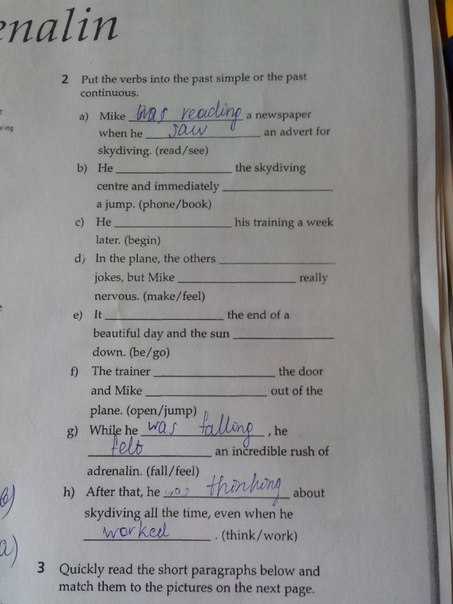 enalin
2 Put the verbs into the past simple or the past
continuous.
a) Mike was reading a newspaper
when he saw an advert for
skydiving. (read/see)
b) He ____________ the skydiving
centre and immediately ____________
a jump. (phone/book)
c) He ____________ his training a week
later. (begin)
d) In the plane, the others ____________
jokes, but Mike ____________ really
nervous. (make/feel)
e) It ____________ the end of a
beautiful day and the sun ____________
down. (be/go)
f) The trainer ____________ the door
and Mike ____________ out of the
plane. (open/jump)
g) While he was falling, he
felt an incredible rush of
adrenalin. (fall/feel)
h) After that, he was thinking about
skydiving all the time, even when he
worked. (think/work)
3 Quickly read the short paragraphs below and
match them to the pictures on the next page.